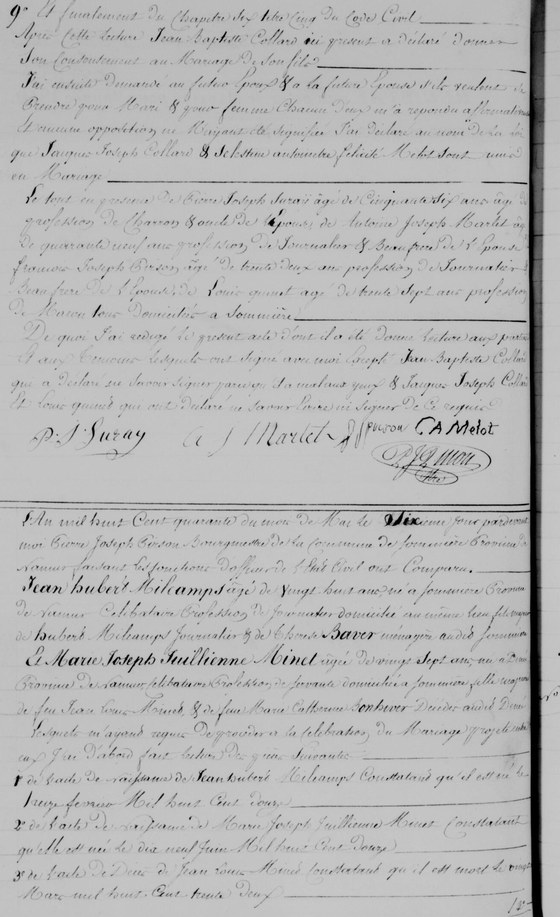 9° Et finalement du Chapitre Six titre Cinq du Code Civil
Après Cette lecture Jean Baptiste Collard ici present a déclaré donner
Son Consentement au Mariage de Son fils
J'ai ensuite demandé au futur Epoux & a la future Epouse s'ils veulent se
Prendre pour Mari & pour femme Chacun deux m'a repondu affirmativement
Et aucune opposition ne M'ayant été Signifiée J'ai déclaré au nom de la loi
que Jacques Joseph Collard & Félicité Melot Sont unis
en Mariage
Le tout en presence de Pierre Joseph Suray âgé de Cinquante Six ans
profession de Charron & oncle de l'Epouse, de Antoine Joseph Martet âgé
de quarante neuf ans profession de Journalier & Beaufrere de l'Epouse
francois Joseph âgé de trente deux ans profession de Journalier &
Beaufrere de l'Epouse, de Louis quinet agé de trente Sept ans profession
de Macon tous domiciliés a Sommiere
De quoi J'ai redigé le present acte dont il a été donné lecture aux parties
Et aux Temoins lesquels ont Signé avec moi Excepté Jean Baptiste Collard
qui a déclaré ne Savoir Signer parcequ'il a mal aux yeux & Jacques Joseph Collard
Et Louis quinet qui ont declaré ne Savoir Ecrire ni Signer de Ce requis
P. J Suray A J Martet C A Melot
L'An mil huit Cent quarante du mois de Mai le Dixieme Jour pardevant
moi Pierre Joseph Bourgmestre de la Commune de Sommiere Province de
Namur faisant les fonctions d'officier de l'Etat Civil ont Comparu
Jean hubert Milcamps âgé de Vingt huit ans né a Sommiere Province
de Namur Celibataire Profession de Journalier domicilié au même lieu fils
de hubert Milcamps Journalier & de Therese Baver ménagere audit Sommiere
Et Marie Joseph Juillienne Minet âgée de vingt Sept ans née a
Province de Namur Celibataire Profession de Servante domiciliée a Sommiere fille
de feu Jean Louis Minet & de feue Marie Catherine Bonhiver Décédés audit
Lesquels m'ayant requis de proceder a la Celebration du Mariage projeté entre
eux J'ai d'abord fait lecture des pieces Suivantes
1° de l'acte de Naissance de Jean hubert Milcamps Constatant qu'il est né le
treize fevrier Mil huit Cent douze
2° de l'acte de Naissance de Marie Joseph Juillienne Minet Constatant
qu'elle est née le dix neuf Juin Mil huit Cent douze
3° de l'acte de Décès de Jean Louis Minet Constatant qu'il est mort le vingt
Mars mil huit Cent trente deux